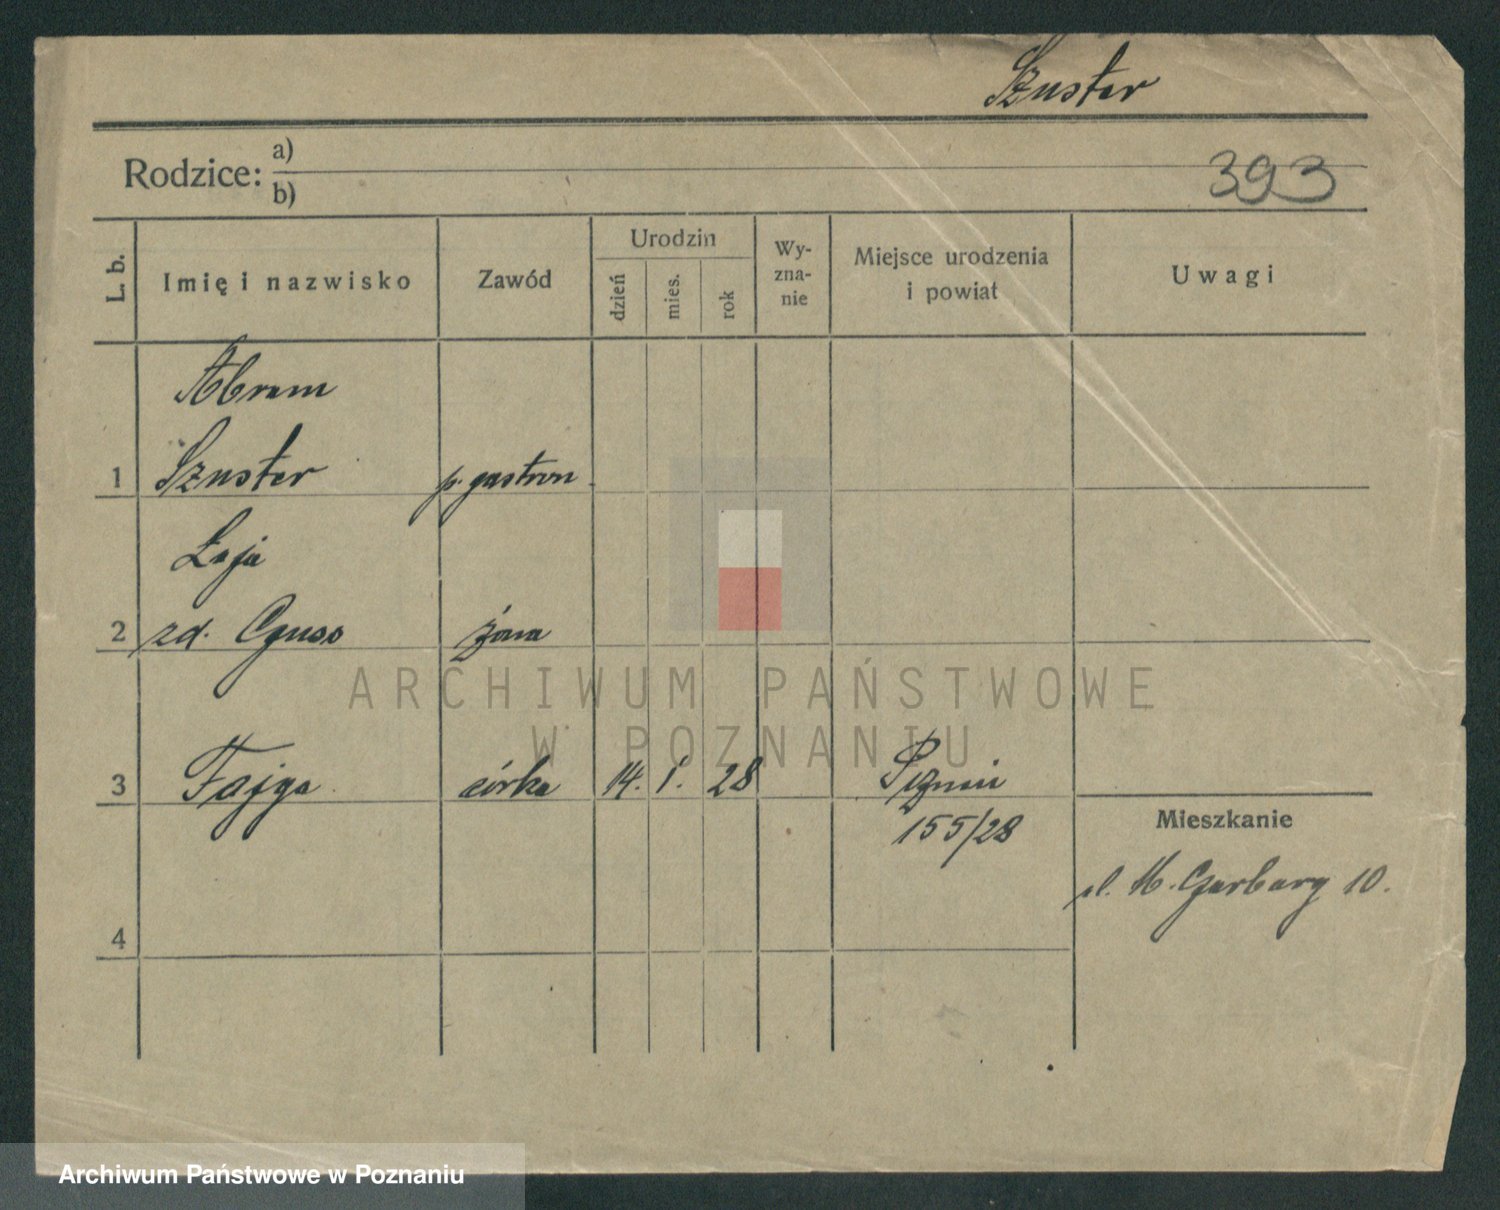 Szuster
Rodzice: a)
b)
393
L. b.
Imię i nazwisko
Zawód
Urodzin
dzień
mies.
rok
Wy-
zna-
nie
Miejsce urodzenia
i powiat
Uwagi
Abram
1 Szuster p. gastron
Łaja
2 zd. żona
3 Fajga córka 14. 1. 28 Poznań
155/28
4
Mieszkanie
ul. M. Garbary 10.
ARCHIWUM PAŃSTWOWE
W POZNANIU
Archiwum Państwowe w Poznaniu